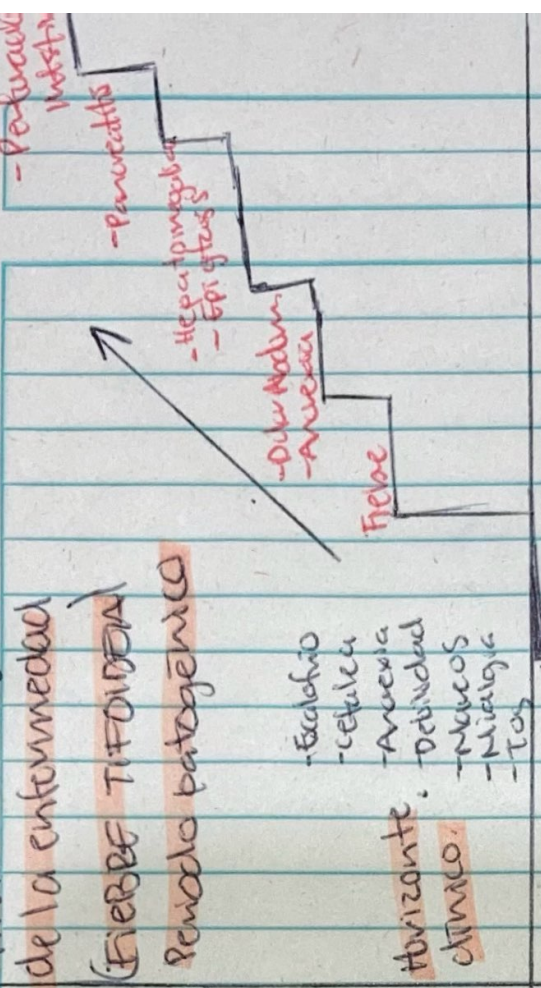 de la enfermedad
(FIEBRE TIFOIDEA)
Periodo patogénico
-Escalofrio
-Cefalea
-Anorexia
-Debilidad
-Mareos
-Mialgia
-Tos
Horizonte
clínico.
Fiebre
-Dolor Abdom
-Anorexia
-Hepatomegalia
-Epigtaxis
-Pancreatitis
-Perforació
Intestin